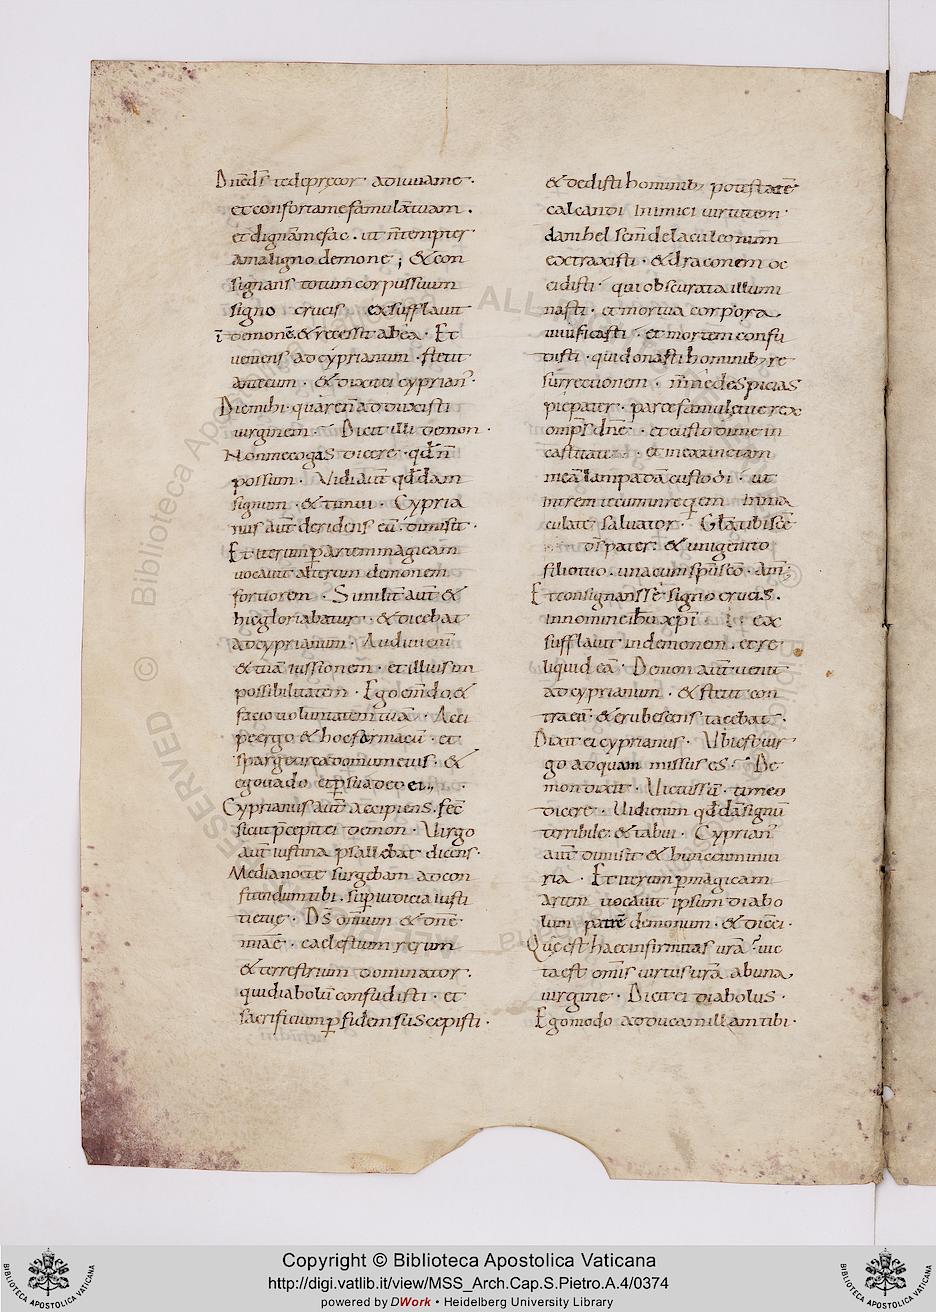 Dne ds te deprecor · adiuua me ·
et conforta me famulā tuam ·
et dignā me fac · ut n̄ tempter
a maligno demone ; & con
signans totum corpus suum
signo crucis exsufflauit
ī demonē & recessit ab ea · Et
ueniens ad cyprianum · stetit
ante eum · & dixit ei cyprian᾽ ·
Dic mihi · quare n̄ adduxisti
uirginem · Dicit illi demon ·
Non me cogas dicere · qd̄ n̄
possum · Uidi aut̄ qd̄dam
signum · & timui · Cypria
nus aut̄ deridens eū · dimisit ·
Et iterum p artem magicam
uocauit alterum demonem
fortiorem · Similit̄ aut̄ &
hic gloriabatur · & dicebat
ad cyprianum · Audiui enī
& tuā iussionem · et illius im
possibilitatem · Ego em̄do &
facio uoluntatem tuā · Acci
pe ergo & hoc farmacū · et
sparge circa domum eius · &
ego uado et psuadeo ei ,,
Cyprianus aut̄ accipiens · fec̄
sicut p̄cepit ei demon · Uirgo
aut̄ iustina psallebat dicens ·
Media nocte surgebam ad con
fitendum tibi · sup iudicia iusti
tie tue · Ds̄ omnium & dn̄e
miae · caelestium rerum
& terrestrium dominator ·
qui diabolū confudisti · et
sacrificium p fidem suscepisti ·
& dedisti hominib; potestatē
calcandi inimici uirtutem ·
danihel sem̄ de lacu leonum
extraxisti · & draconem oc
cidisti · qui obscurata illumi
nasti · et mortua corpora
uiuificasti · et mortem confu
disti · qui donasti hominib; re
surrectionem · n̄ me despicias
pie pater · parce famule tue rex
omps̄ dn̄e · et custodi me in
et inextinctam
meā lampadā custodi · ut
intrem tecum in requiem inma
culate saluator · Glā tibi scē
ds̄ pater · & unigenito
filio tuo · una cum spū sc̄o · Am̄ ;
Et consignans se signo crucis ·
in nomine ihu xp̄i · ex
sufflauit in demonem · et re
liquid eā · Demon aut̄ uenit
ad cyprianum · & stetit con
tra eū · & erubescens tacebat ·
Dixit ei cyprianus · Ubi est uir
go ad quam missus es · De
mon dixit · Uictus sū · timeo
dicere · Uidi enim qd̄dā signū
terribile · & tabui · Cyprian᾽
aut̄ dimisit & hunc cum iniu
ria · Et iterum p magicam
artem uocauit ipsum diabo
lum patrē demonum · & dic ei ·
Que est haec infirmitas urā · uic
ta est omīs uirtus urā ab una
uirgine · Dicit ei diabolus ·
Ego modo adducam illam tibi ·
Copyright © Biblioteca Apostolica Vaticana
http://digi.vatlib.it/view/MSS_Arch.Cap.S.Pietro.A.4/0374
powered by DWork • Heidelberg University Library